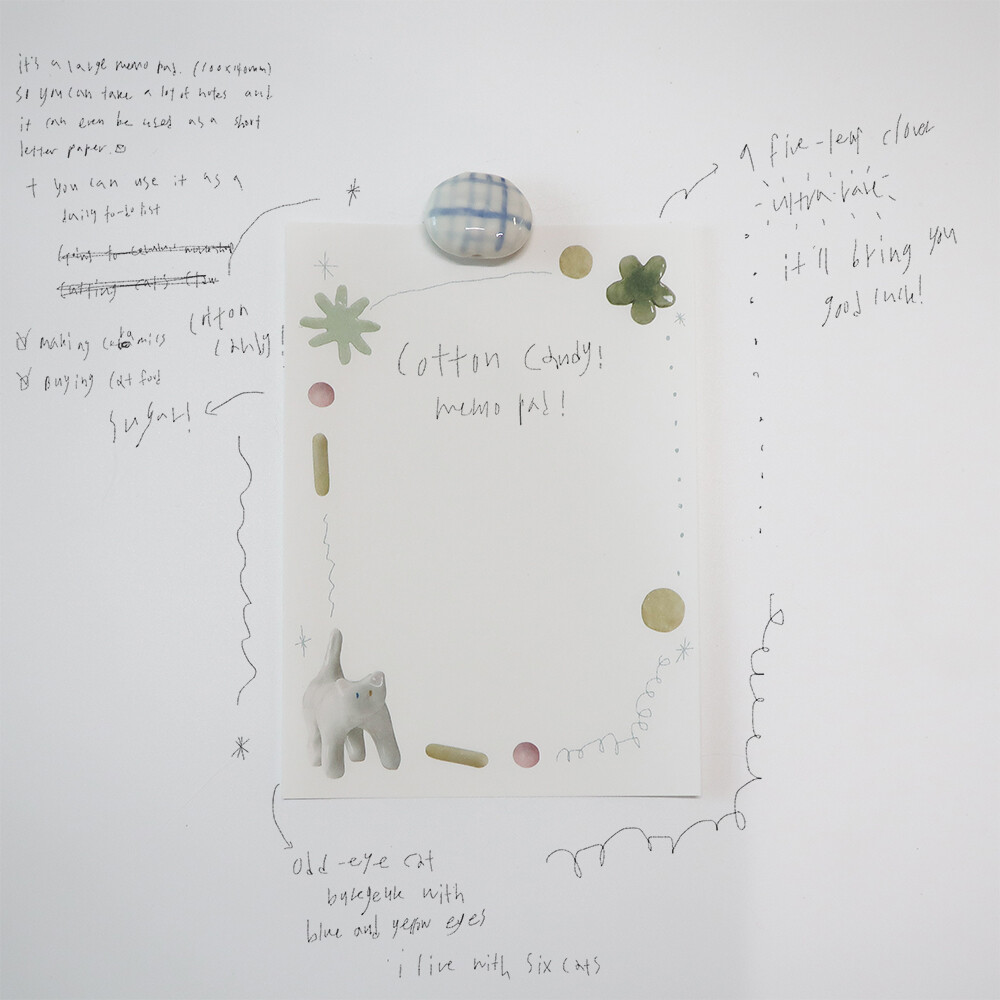 it's a large memo pad. (100x140mm)
so you can take a lot of notes and
it can even be used as a short
letter paper.
+ you can use it as a
daily to-do list
going to ceramic workshop
cutting cat's claw
making ceramics
buying cat food
cotton
candy!
sugar!
cotton candy!
memo pad!
a five-leaf clover
ultra-rare
it'll bring you
good luck!
odd-eye cat
with
blue and yellow eyes
i live with six cats